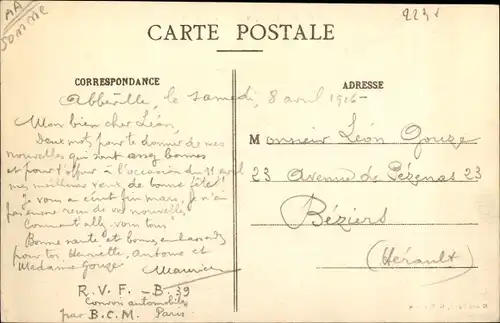 MA
SOMME
2234
CARTE POSTALE
CORRESPONDANCE
ADRESSE
Abbéville, le samedi, 8 avril 1916-
Mon bien cher Léon,
Deux mots pour te donner de mes
nouvelles qui sont assez bonnes
et pour t'offrir à l'occasion du 11 avril
mes meilleurs vœux de bonne fête!
Je vous a écrit fin mars, je n'ai
pas encore reçu de vos nouvelles
Comment allez vous tous!
Bonne santé et bons embrassades
pour toi, Henriette, Antoine et
Madame Gouze
Maurice
R.V.F. - B. 39
Convoi automobiles
par B.C.M. Paris.
Monsieur Léon Gouze
23 Avenue de Pézenas 23
Béziers
(Hérault)